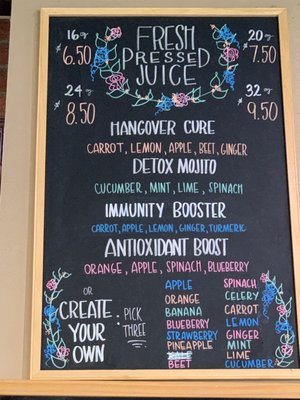 16oz
$6.50
FRESH
PRESSED
JUICE
20oz
$7.50
24oz
$8.50
32oz
$9.50
HANGOVER CURE
CARROT, LEMON, APPLE, BEET, GINGER
DETOX MOJITO
CUCUMBER, MINT, LIME, SPINACH
IMMUNITY BOOSTER
CARROT, APPLE, LEMON, GINGER, TURMERIC
ANTIOXIDANT BOOST
ORANGE, APPLE, SPINACH, BLUEBERRY
OR
CREATE
YOUR
OWN
: PICK
THREE
APPLE
ORANGE
BANANA
BLUEBERRY
STRAWBERRY
PINEAPPLE
BEET
SPINACH
CELERY
CARROT
LEMON
GINGER
MINT
LIME
CUCUMBER